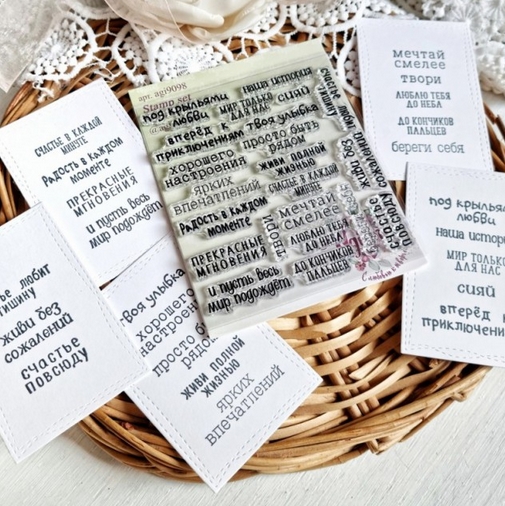 СЧАСТЬЕ В КАЖДОЙ
МИНУТЕ
РАДОСТЬ В КАЖДОМ
МОМЕНТЕ
ПРЕКРАСНЫЕ
МГНОВЕНИЯ
и пусть весь
мир подождёт
любит
тишину
живи без
сожалений
счастье
повсюду
твоя улыбка
хорошего
настроения
просто быть
рядом
живи полной
жизнью
ярких
впечатлений
арт. agi9098
Stamp set
под крыльями
любви
вперёд к
приключениям
хорошего
настроения
ярких
впечатлений
РАДОСТЬ В КАЖДОМ
МОМЕНТЕ
ПРЕКРАСНЫЕ
МГНОВЕНИЯ
и пусть весь
мир подождёт
наша история
МИР ТОЛЬКО
ДЛЯ НАС
СИЯЙ
твоя улыбка
просто быть
рядом
живи полной
жизнью
СЧАСТЬЕ В КАЖДОЙ
МИНУТЕ
мечтай
смелее
твори
ЛЮБЛЮ ТЕБЯ
ДО НЕБА
ДО КОНЧИКОВ
ПАЛЬЦЕВ
счастье любит
тишину
живи без
сожалений
счастье
повсюду
мечтай
смелее
твори
ЛЮБЛЮ ТЕБЯ
ДО НЕБА
ДО КОНЧИКОВ
ПАЛЬЦЕВ
береги себя
под крыльями
любви
наша история
МИР ТОЛЬКО
ДЛЯ НАС
СИЯЙ
вперёд к
приключениям